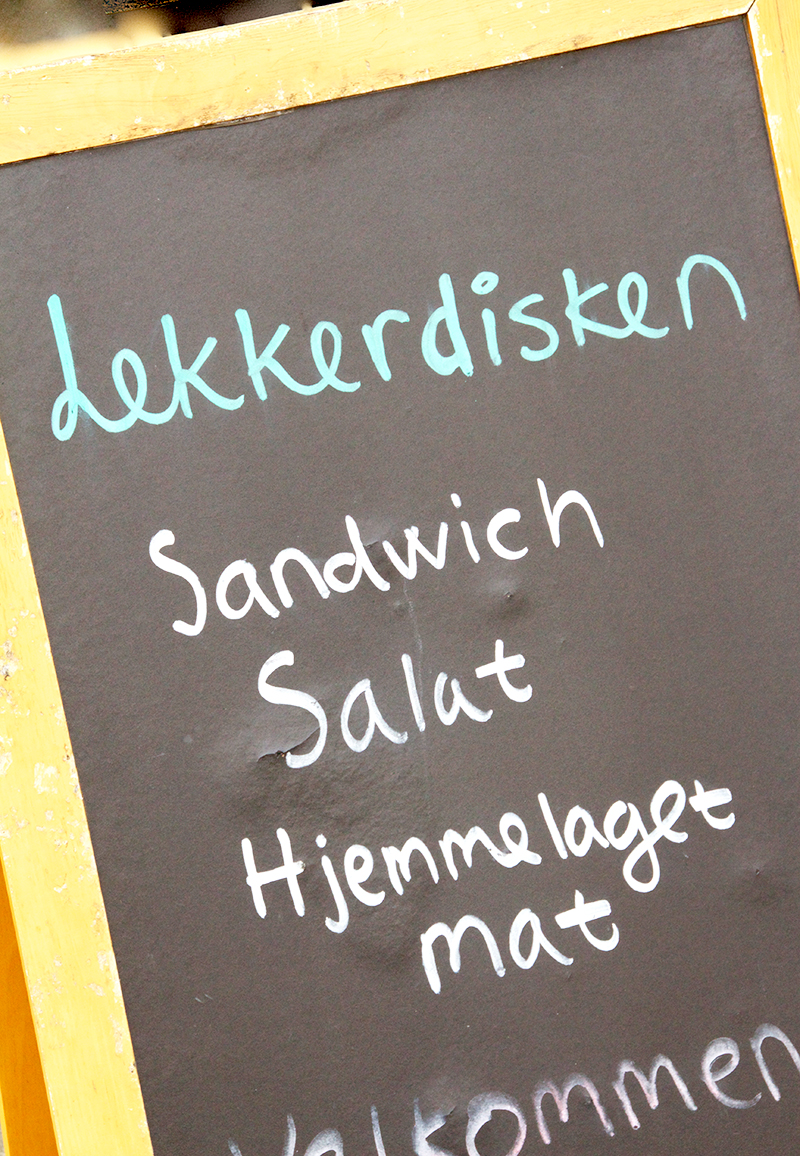 Lekkerdisken
Sandwich
Salat
Hjemmelaget
mat
Velkommen